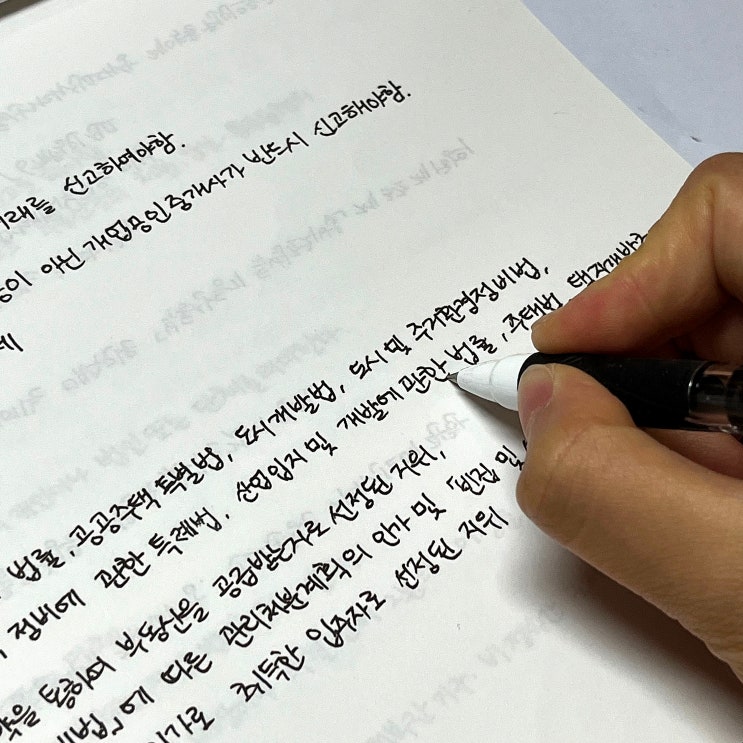 래를 신고하여야함.
이 아닌 개업공인중개사가 반드시 신고해야함.
법률, 공공주택 특별법, 도시개발법, 도시 및 주거환경정비법,
정비에 관한 특례법, 산업입지 및 개발에 관한 법률, 주택법, 택지개발
을 통하여 부동산을 공급받는자로 선정된 지위,
법」에 따른 관리처분계획의 인가 및 「빈집 및
가로 취득한 입주자로 선정된 지위